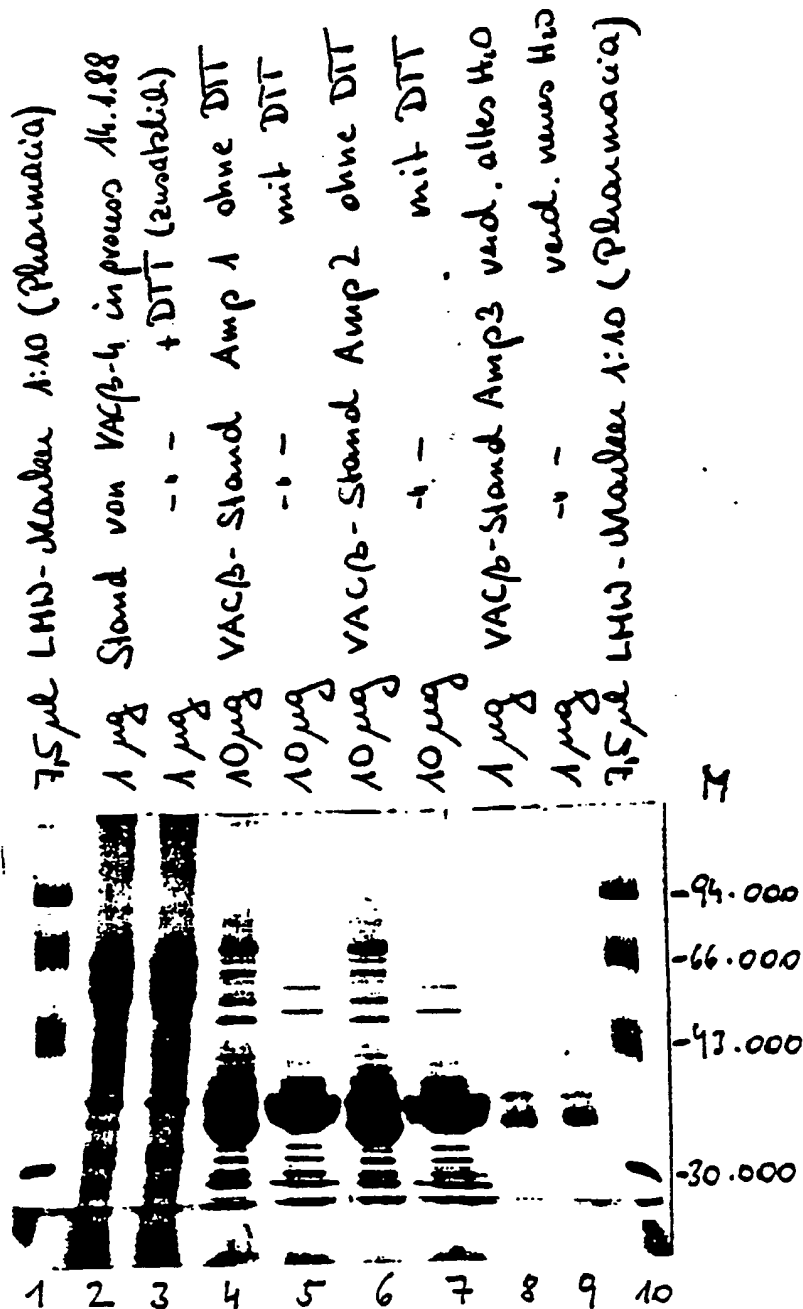 7,5 µl LMW-Marker 1:10 (Pharmacia)
1 µg Stand von VACβ-4 in process 14.1.88
1 µg -"- +DTT (zusätzlich)
10 µg VACβ-Stand Amp 1 ohne DTT
10 µg -"- mit DTT
10 µg VACβ-Stand Amp 2 ohne DTT
10 µg -"- mit DTT
1 µg VACβ-Stand Amp3 verd. altes H₂O
1 µg -"- verd. neues H₂O
7,5 µl LMW-Marker 1:10 (Pharmacia)
M
-94.000
-66.000
-43.000
-30.000
1 2 3 4 5 6 7 8 9 10